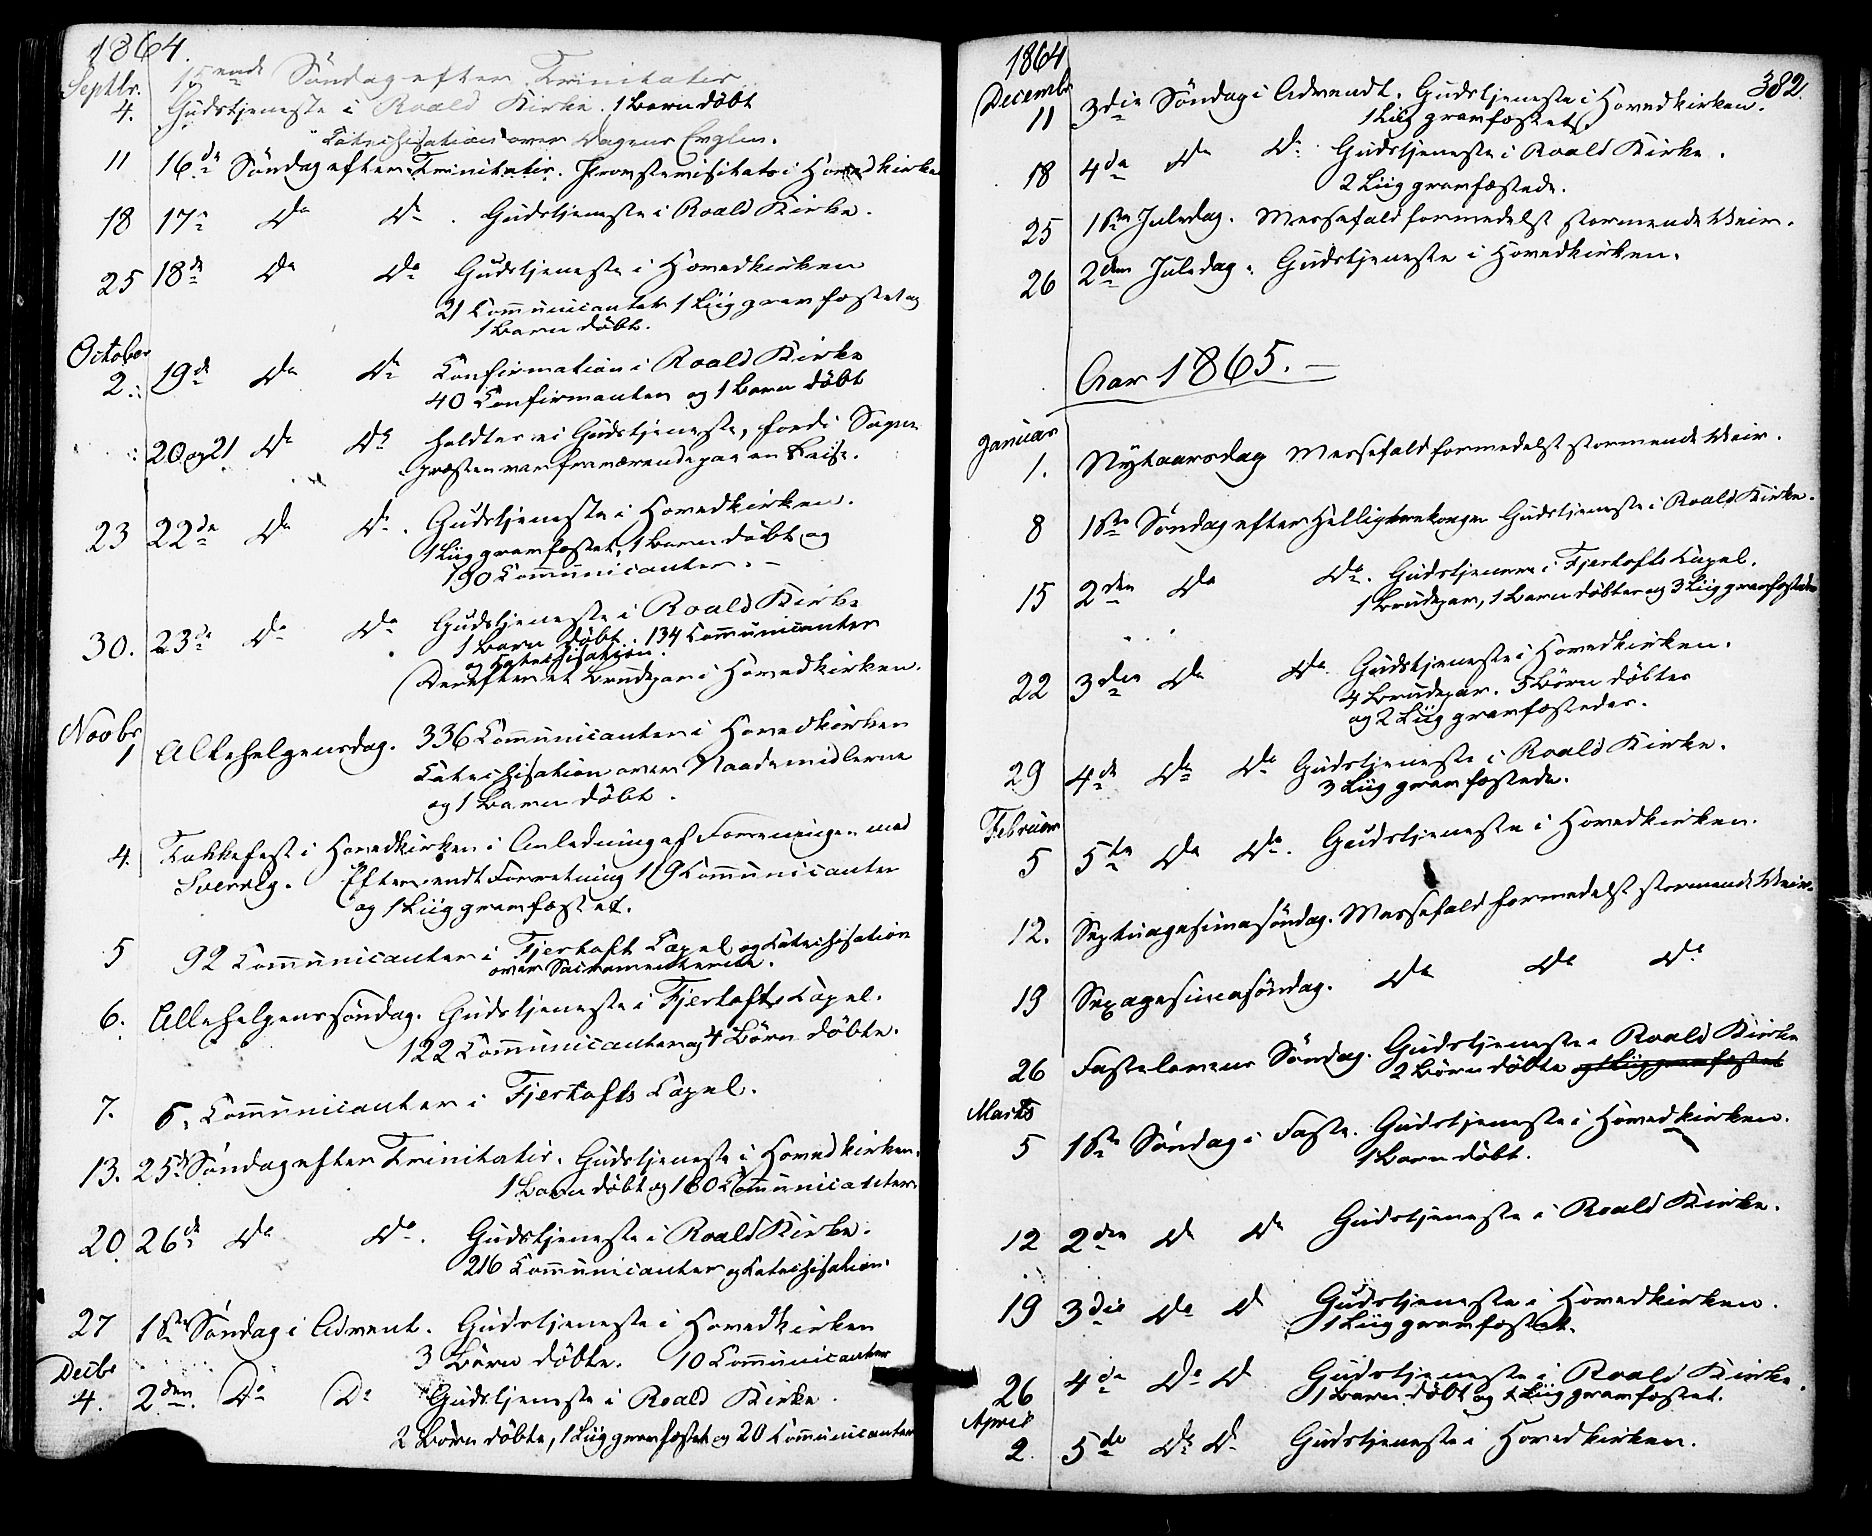 1864.
Septbr. 15ende Söndag efter Trinitatis
4. Gudstjeneste i Roald Kirke. 1 Barn döbt
Catechisation over Dagens Evglm.
11 16de Söndag efter Trinitatis. Provstevisitats i Hovedkirke
18 17de Do Do. Gudstjeneste i Roald Kirke.
25 18de Do Do Gudstjeneste i Hovedkirken
21 Communicanter 1 Liig gravfæstet og
1 Barn döbt.
October
2. 19de Do Do Confirmation i Roald Kirke
40 Confirmanter og 1 Barn döbt
20 og 21 Do Do holdtes ei Gudstjeneste, fordi Sogne
præsten var fraværende paa en Reise.
23 22de Do Do. Gudstjeneste i Hovedkirken.
1 Liig gravfæstet, 1 Barn döbt og
190 Communicanter. –
30. 23de Do Do Gudstjeneste i Roald Kirke
1 Barn döbt. 134 Communicanter
og Catechisation.
Derefter et Brudepar i Hovedkirken.
Novbr
1 Allehelgensdag. 336 Communicanter i Hovedkirken
Catechisation over Naademidlerne
og 1 Barn döbt.
4. Takkefest i Hovedkirken i Anledning af Foreningen med
Sverrig. Efter endt Forretning 119 Communicanter
og 1 Liig gravfæstet.
5 92 Communicanter i Fjertoft Capel og Catechisation
over Sacramenterne.
6. Allehelgenssöndag. Gudstjeneste i Fjertofts Capel.
122 Communicanter og 4 Börn döbte.
7. 6. Communicanter i Fjertofts Capel.
13. 25de Söndag efter Trinitatis. Gudstjeneste i Hovedkirken.
1 Barn döbt og 180 Communicanter.
20. 26de Do Do. Gudstjeneste i Roald Kirke.
216 Communicanter og Catechisation.
27 1ste Söndag i Advent. Gudstjeneste i Hovedkirken
3 Börn döbte. 10 Communicanter
Decbr
4. 2den Do Do Gudstjeneste i Roald Kirke.
2 Börn döbte, 1 Liig gravfæstet og 20 Communicanter
1864
382.
Decembr
11 3die Söndag i Advendt. Gudstjeneste i Hovedkirken.
1 Liig gravfæstet.
18 4de Do Do. Gudstjeneste i Roald Kirke.
2 Liig gravfæstede.
25 1ste Juledag. Messefald formedelst stormende Veir.
26 2den Juledag. Gudstjeneste i Hovedkirken.
Aar 1865. –
Januar
1. Nytaarsdag Messefald formedelst stormende Veir.
8 1ste Söndag efter Helligtrekonger Gudstjeneste i Roald Kirke.
15 2den Do Do. Gudstjeneste i Fjertofts Capel.
1 Brudepar, 1 Barn döbtes og 3 Liig gravfæstedes
22 3die Do Do. Gudstjeneste i Hovedkirken.
4 Brudepar. 5 Börn döbtes
og 2 Liig gravfæstedes.
29 4de Do Do Gudstjeneste i Roald Kirke.
3 Liig gravfæstede.
Februar
5 5te Do Do. Gudstjeneste i Hovedkirken.
12. Septuagesimasöndag. Messefald formedelst stormende Veir.
19 Sexagesimasöndag. Do Do Do
26 Fastelavens Söndag. Gudstjeneste i Roald Kirke
2 Börn döbte og 1 Liig gravfæstet
Marts
5 1ste Söndag i Faste. Gudstjeneste i Hovedkirken.
1 Barn döbt.
12 2den Do Do Gudstjeneste i Roald Kirke.
19 3die Do Do Gudstjeneste i Hovedkirken.
1 Liig gravfæstet.
26 4de Do Do Gudstjeneste i Roald Kirke.
1 Barn döbt og 1 Liig gravfæstet.
April
2. 5te Do Do Gudstjeneste i Hovedkirken.